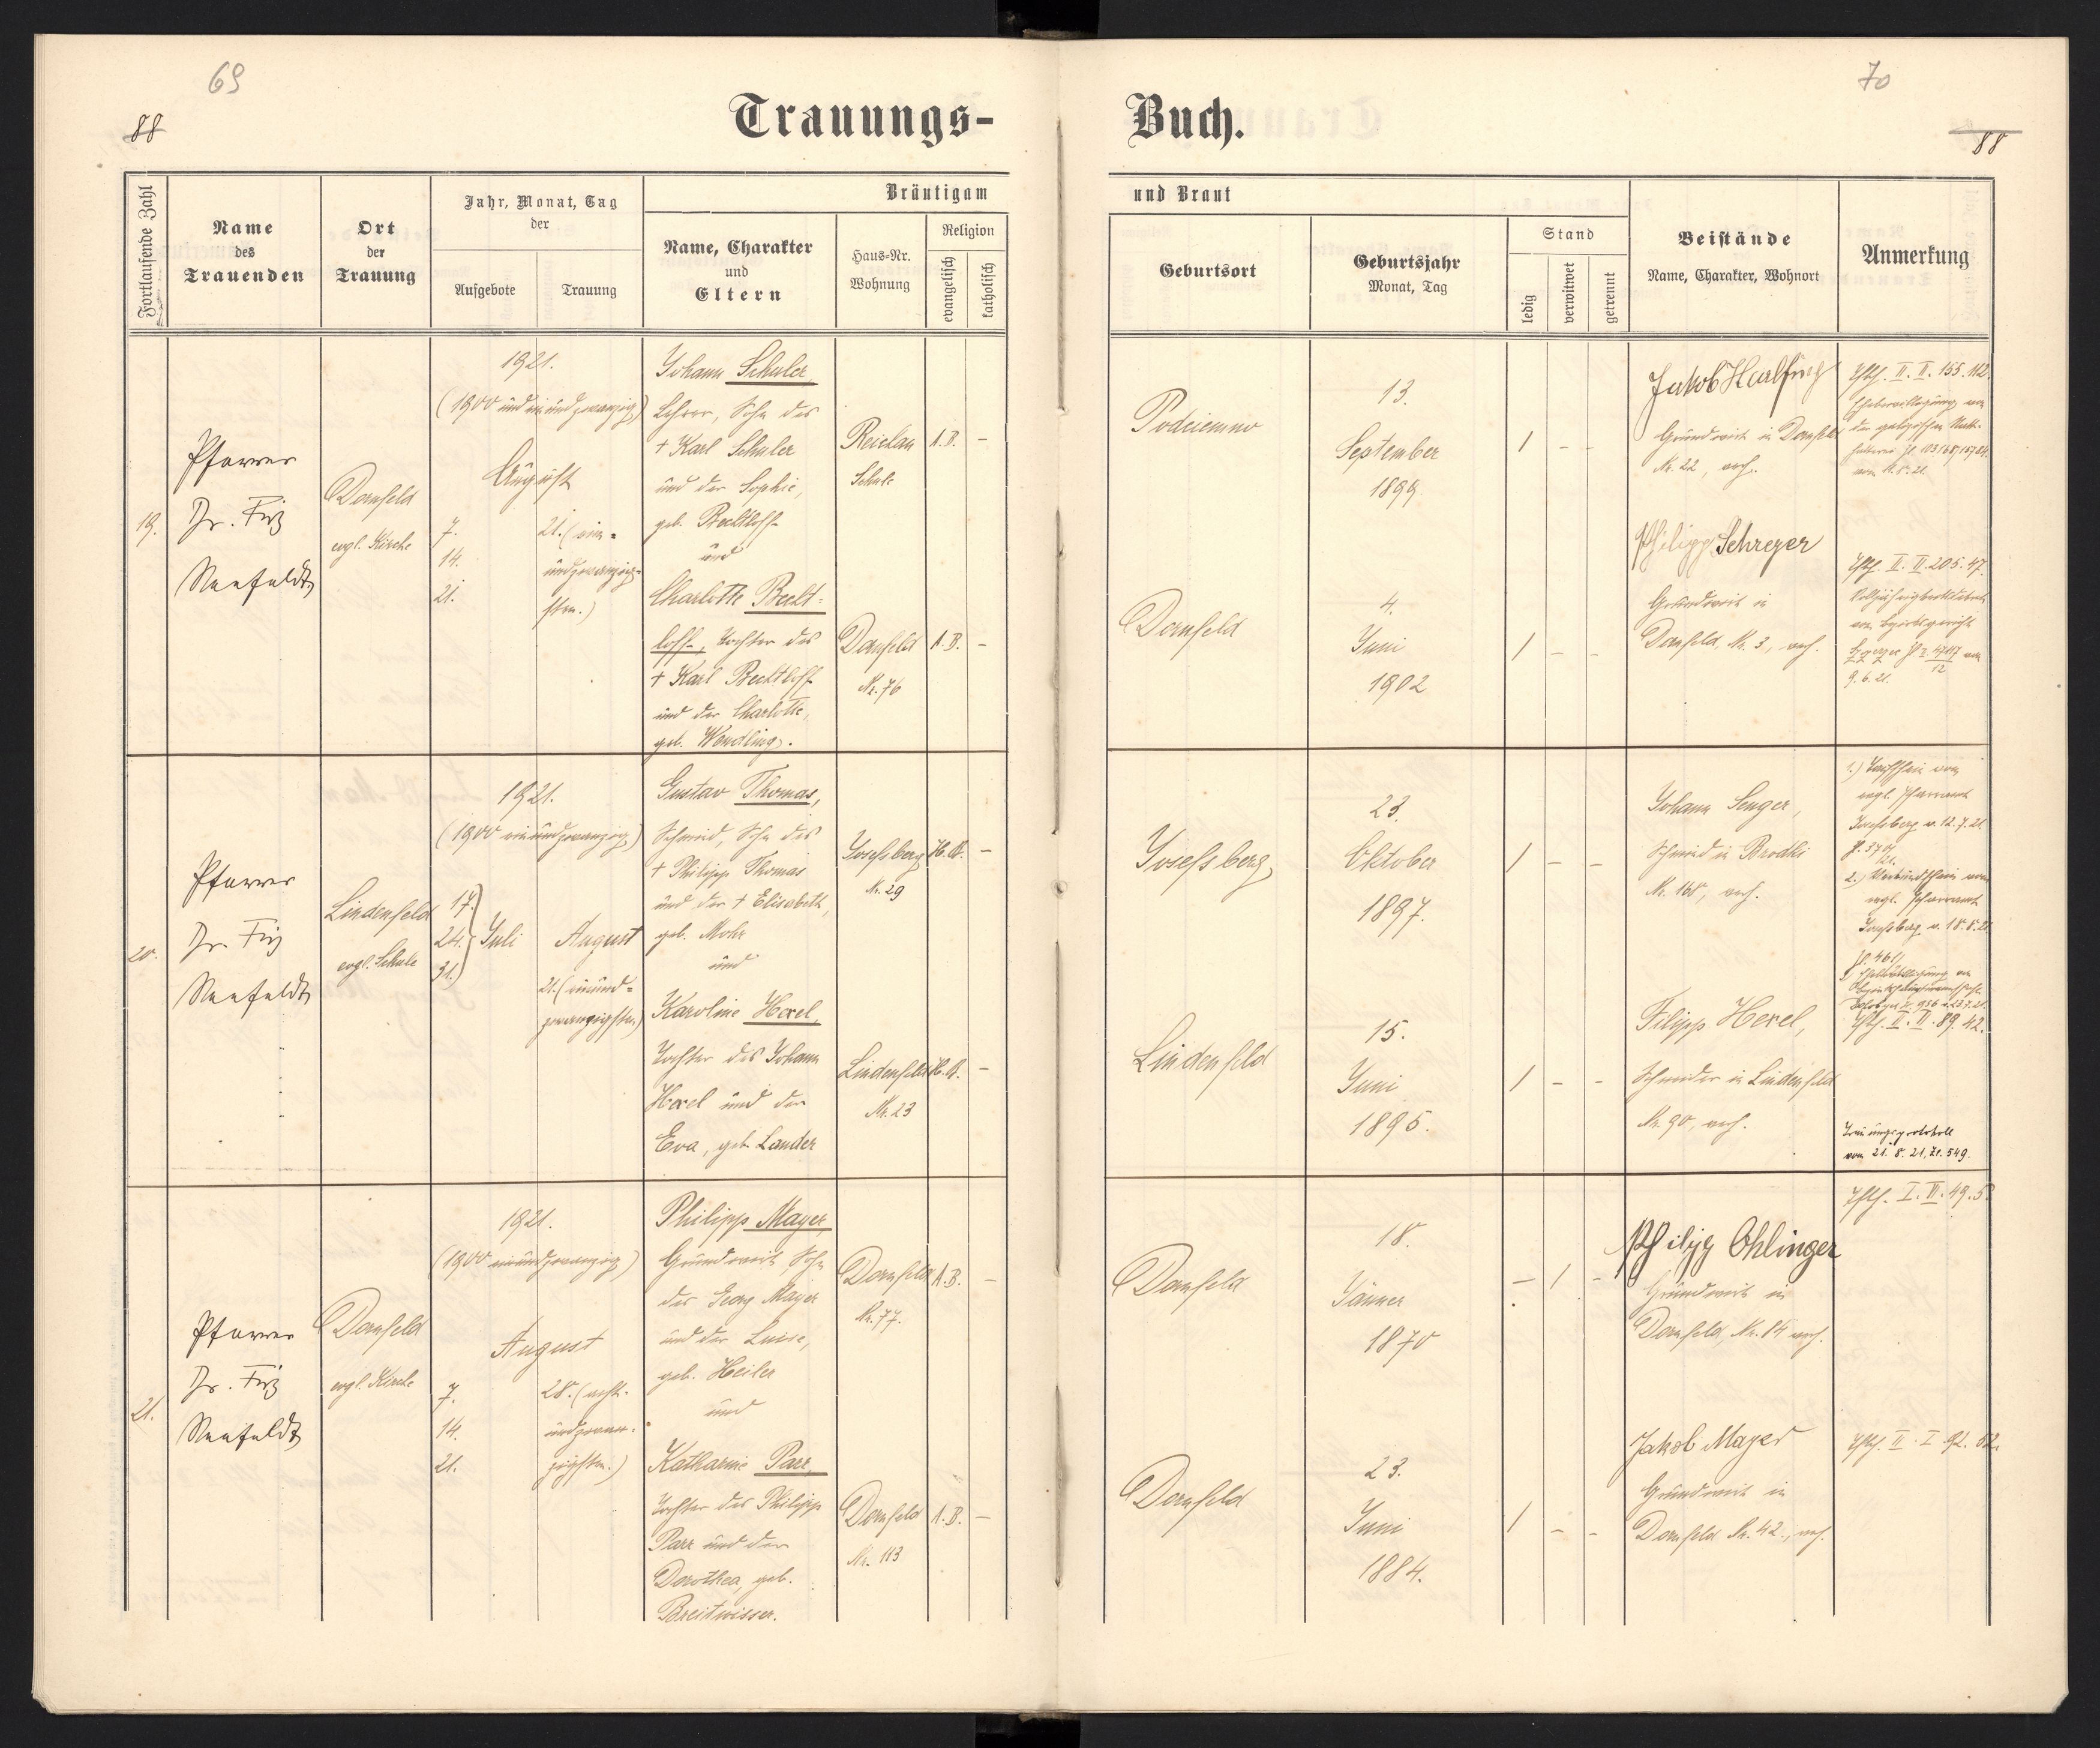 69
88
Trauungs-
Fortlaufende Zahl
Name
des
Trauenden
Ort
der
Trauung
Jahr, Monat, Tag
der
Aufgebote
Trauung
Bräutigam
Name, Charakter
und
Eltern
Haus-Nr.
Wohnung
Religion
evangelisch
katholisch
19.
Pfarrer
Dr. Fritz
Seefeldt
Dornfeld
evgl. Kirche
1921.
(1900 und einundzwanzig)
August
7.
14.
21.
21. (ein=
undzwanzig-
sten.)
Johann Schuler,
Lehrer, Sohn des
+ Karl Schuler
und der Sophie,
geb. Bechtloff
und
Charlotte Becht=
loff, Tochter des
+ Karl Bechtloff
und der Charlotte,
geb. Wendling.
Reichau
Schule
A.B.
-
Dornfeld
Nr. 76
A.B.
-
20.
Pfarrer
Dr. Fritz
Seefeldt
Lindenfeld
evgl. Schule
1921.
(1900 einundzwanzig)
17.
24.
31.
Juli
August
21. (einund=
zwanzigsten)
Gustav Thomas,
Schmied, Sohn des
+ Philipp Thomas
und der + Elisabeth,
geb. Mohr
und
Karoline Hexel,
Tochter des Johann
Hexel und der
Eva, geb. Lander
Josefsberg
Nr. 29
H.B.
-
Lindenfeld
Nr. 23
H.B.
-
21.
Pfarrer
Dr. Fritz
Seefeldt
Dornfeld
evgl. Kirche
1921.
(1900 einundzwanzig)
August
7.
14.
21.
28. (acht-
undzwan-
zigsten.)
Philipp Mayer,
Grundwirt, Sohn
des Georg Mayer
und der Luise,
geb. Heiler
und
Katharine Parr,
Tochter des Philipp
Parr und der
Dorothea, geb.
Breitwieser.
Dornfeld
Nr. 77.
A.B.
-
Dornfeld
Nr. 113
A.B.
-
70
88
Buch.
und Braut
Geburtsort
Geburtsjahr
Monat, Tag
Stand
ledig
verwitwet
getrennt
Beistände
Name, Charakter, Wohnort
Anmerkung
Podciemno
13.
September
1899.
1 - -
Jakob Haalfing
Grundwirt in Dornfeld
Nr. 22, evch.
II. II. 155. 112.
Dornfeld
4.
Juni
1902
1 - -
Philipp Schreyer
Grundwirt in
Dornfeld, Nr. 3, evch.
II. II. 205. 47.
9. 6. 21.
Josefsberg
23.
Oktober
1897.
1 - -
Johann Senger,
Schmied in Brodki
Nr. 168, evch.
1.) Taufschein vom
evgl. Pfarramt
Josefsberg v. 12. 7. 21.
2.)
evgl. Pfarramt
Josefsberg v. 18. 8. 21
Zl. 461
Lindenfeld
15.
Juni
1895.
1 - -
Filipp Hexel,
Schneider in Lindenfeld
Nr. 90, evch.
II. II. 89. 42.
Trauungsprotokoll
vom 21. 8. 21, Zl. 549.
Dornfeld
18.
Jänner
1870
- 1 -
Philipp Ohlinger
Grundwirt in
Dornfeld, Nr. 84 evch.
I. II. 49. 5.
Dornfeld
23.
Juni
1884.
1 - -
Jakob Mayer
Grundwirt in
Dornfeld Nr. 42., evch.
II. I. 92. 52.